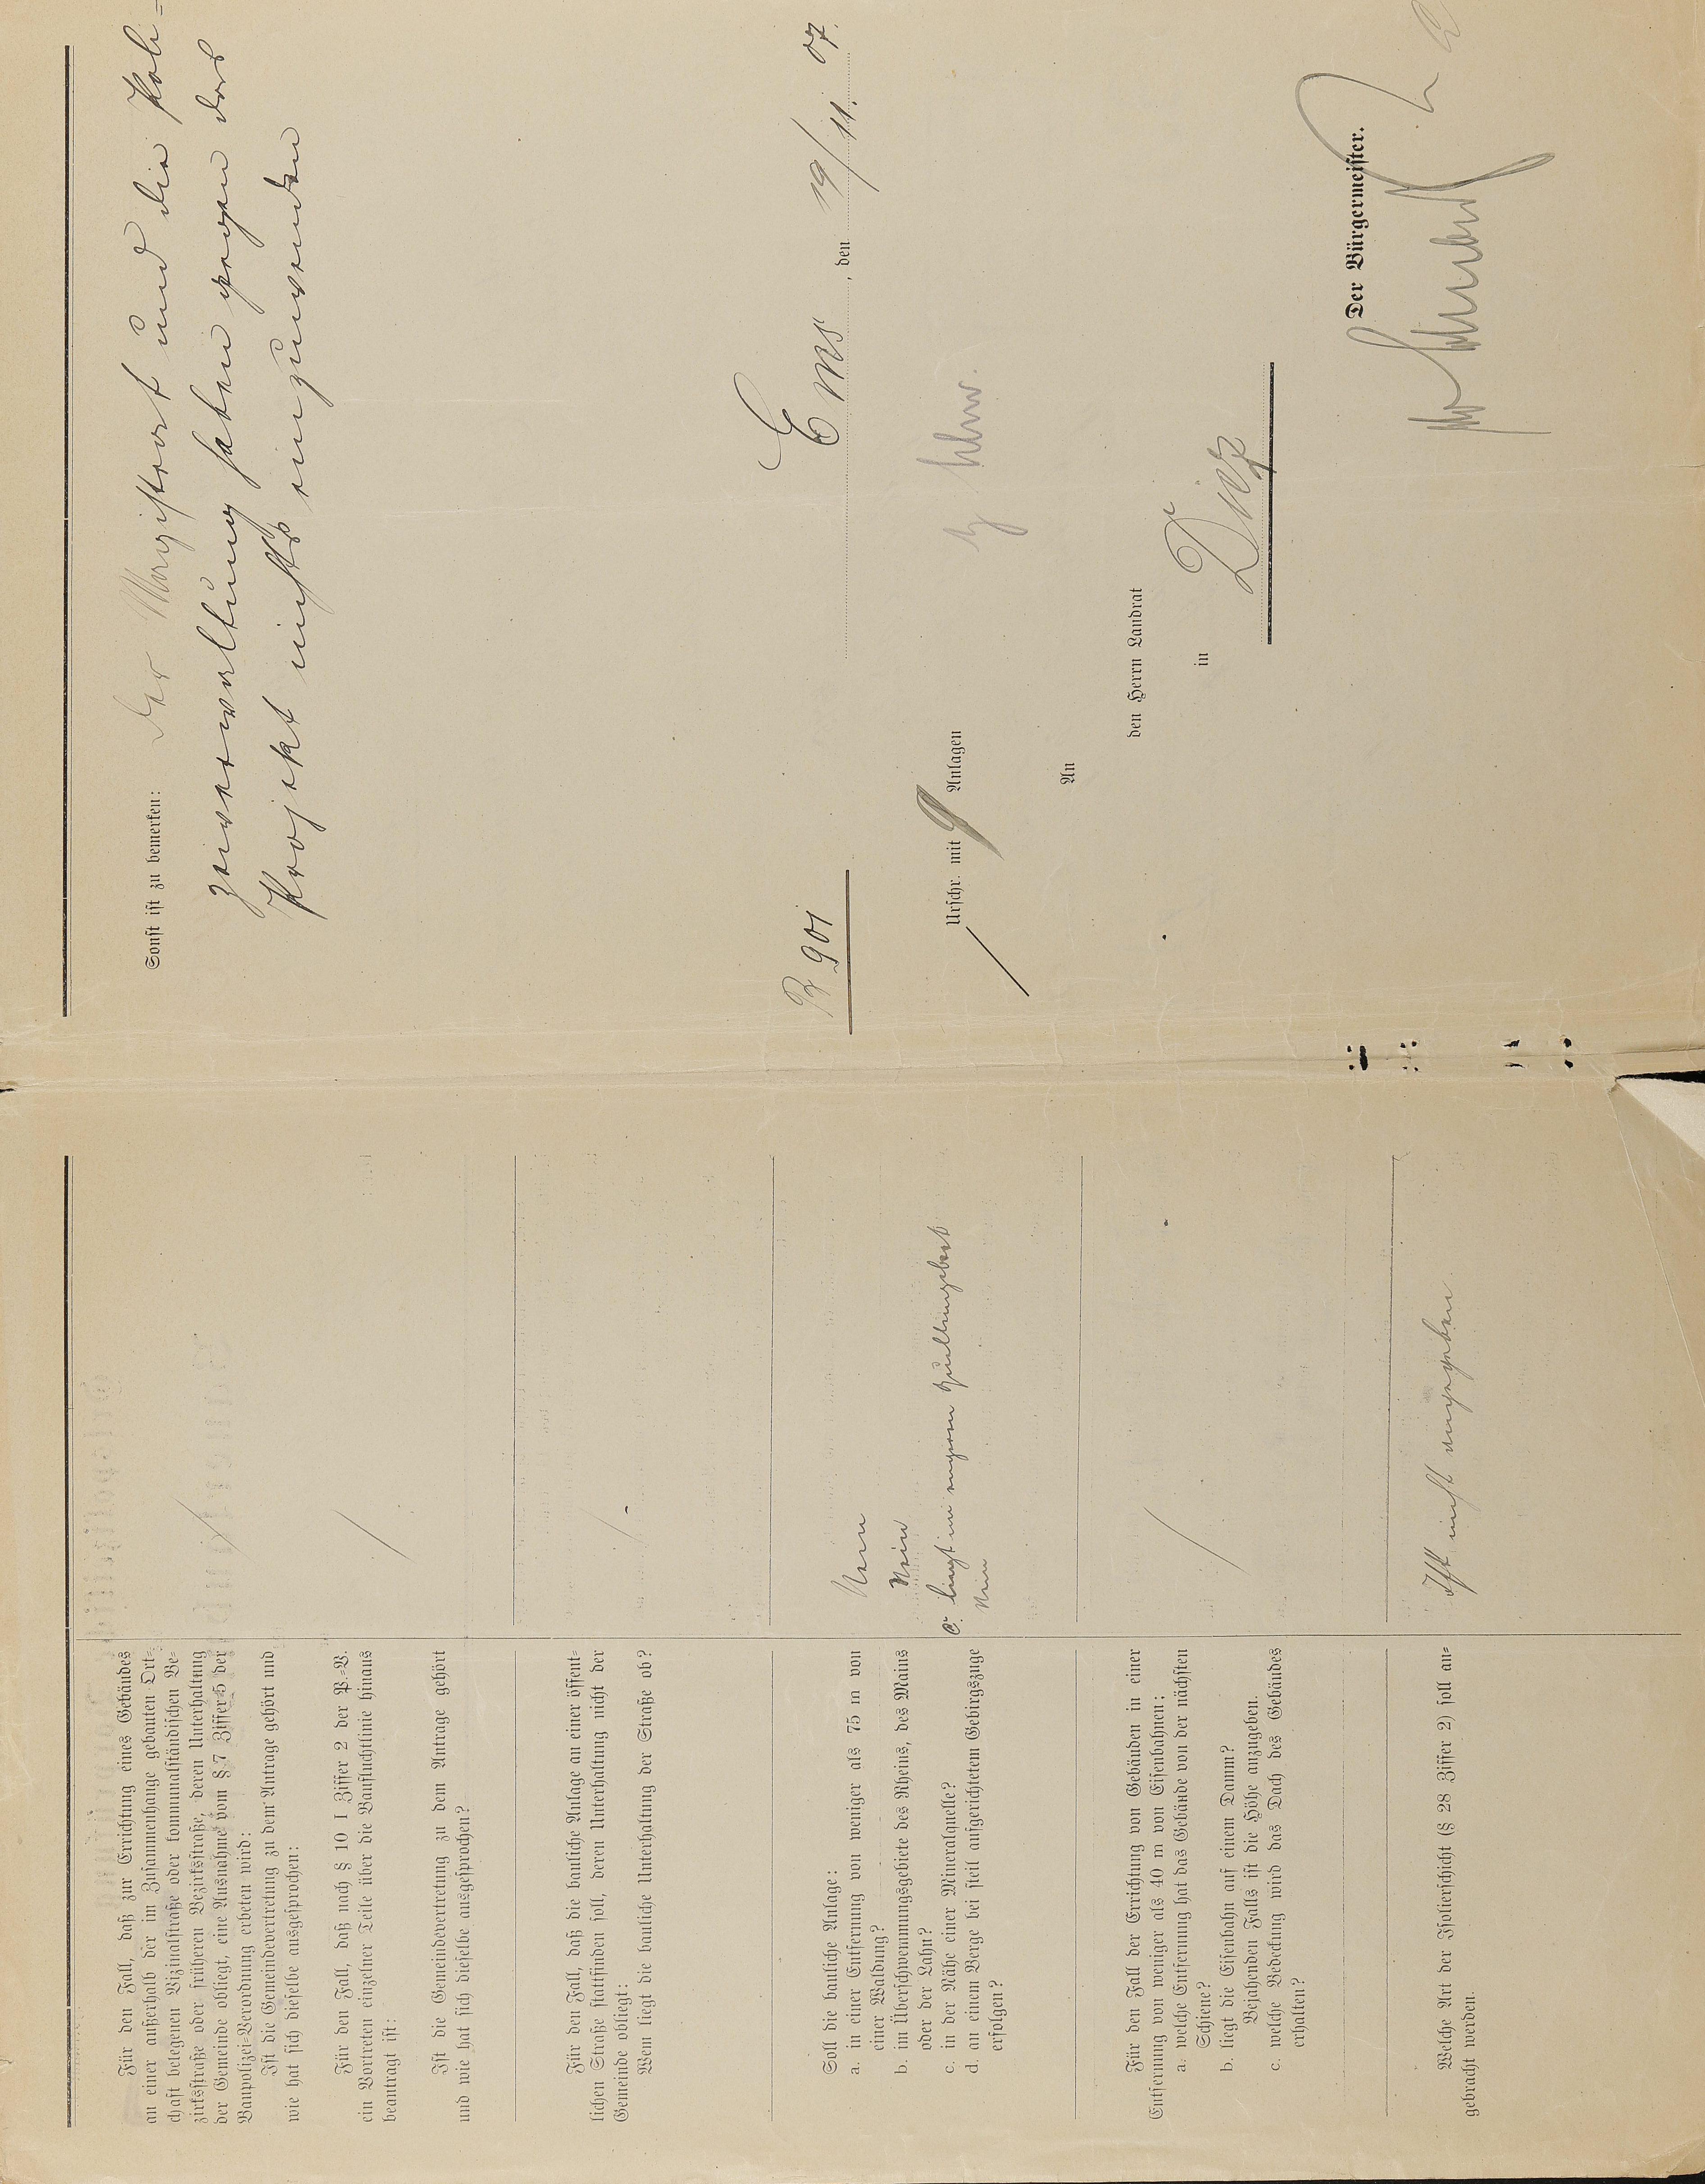 Für den Fall, daß zur Errichtung eines Gebäudes
an einer außerhalb der im Zusammenhange gebauten Ort=
schaft belegenen Vizinalstraße oder kommunalständischen Be=
zirksstraße oder früheren Bezirksstraße, deren Unterhaltung
der Gemeinde obliegt, eine Ausnahme vom § 7 Ziffer 5 der
Baupolizei=Verordnung erbeten wird:
Ist die Gemeindevertretung zu dem Antrage gehört und
wie hat sich dieselbe ausgesprochen:
Für den Fall, daß nach § 10 I Ziffer 2 der P.=V.
ein Vortreten einzelner Teile über die Baufluchtlinie hinaus
beantragt ist:
Ist die Gemeindevertretung zu dem Antrage gehört
und wie hat sich dieselbe ausgesprochen?
Für den Fall, daß die bauliche Anlage an einer öffent=
lichen Straße stattfinden soll, deren Unterhaltung nicht der
Gemeinde obliegt:
Wem liegt die bauliche Unterhaltung der Straße ob?
Soll die bauliche Anlage:
a. in einer Entfernung von weniger als 75 m von
einer Waldung?
Nein
b. im Überschwemmungsgebiete des Rheins, des Mains
oder der Lahn?
Nein
c. in der Nähe einer Mineralquelle?
c. liegt im engern Quellengebiet
d. an einem Berge bei steil aufgerichtetem Gebirgszuge
erfolgen?
Nein
Für den Fall der Errichtung von Gebäuden in einer
Entfernung von weniger als 40 m von Eisenbahnen:
a. welche Entfernung hat das Gebäude von der nächsten
Schiene?
b. liegt die Eisenbahn auf einem Damm?
Bejahenden Falls ist die Höhe anzugeben.
c. welche Bedeckung wird das Dach des Gebäudes
erhalten?
Welche Art der Isolierschicht (§ 28 Ziffer 2) soll an=
gebracht werden.
Ist nicht angegeben
Sonst ist zu bemerken: Der Magistrat und die Poli=
zeiverwaltung haben gegen das
Projekt nichts einzuwenden
B 901
Ems, den 19/11. 07.
Urschr. mit 9 Anlagen
An
den Herrn Landrat
in
Diez
Der Bürgermeister.